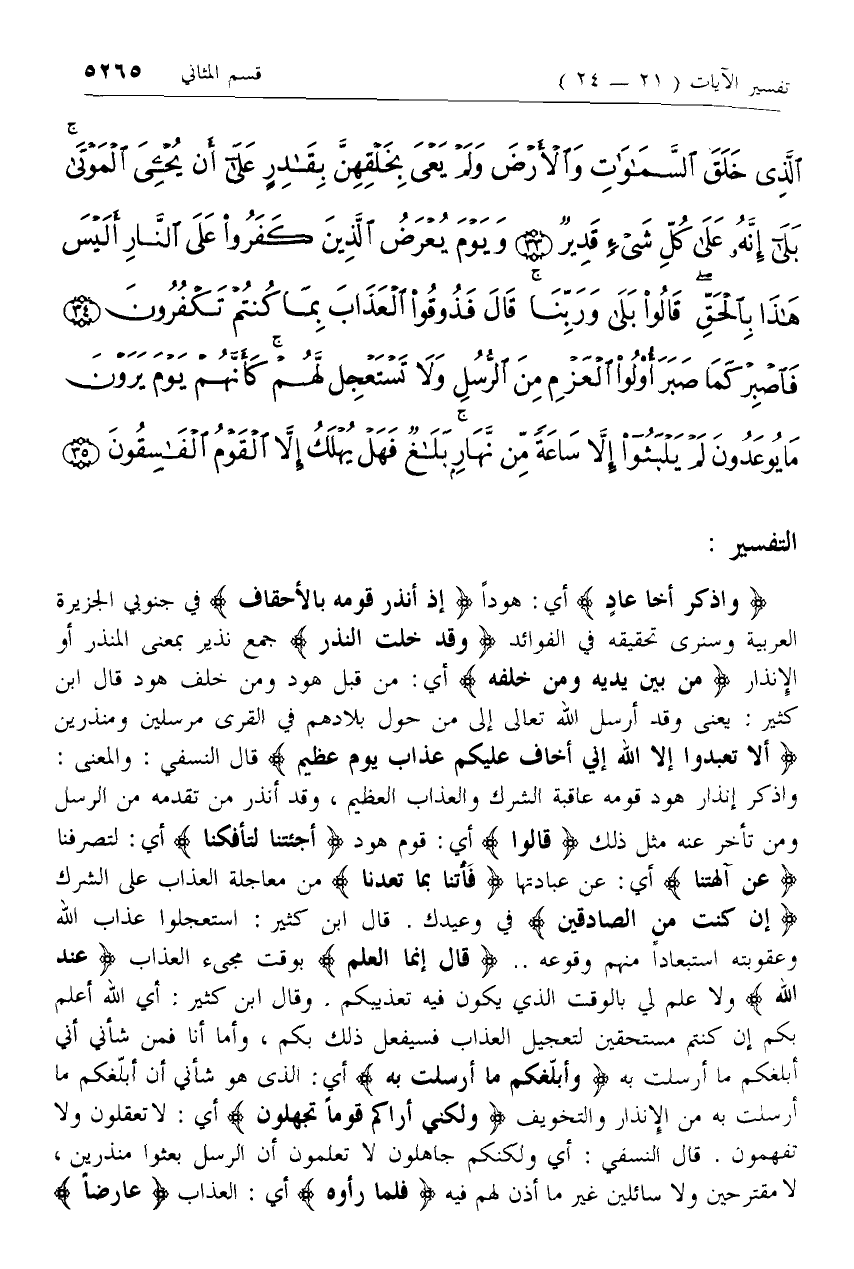 تفسير الآيات ( ٢١ – ٢٤ ) قسم المثاني ٥٢٦٥
ٱلَّذِى خَلَقَ ٱلسَّمَٰوَٰتِ وَٱلْأَرْضَ وَلَمْ يَعْىَ بِخَلْقِهِنَّ بِقَٰدِرٍ عَلَىٰٓ أَن يُحْـِۧىَ ٱلْمَوْتَىٰ ۚ
بَلَىٰٓ إِنَّهُۥ عَلَىٰ كُلِّ شَىْءٍ قَدِيرٌ ﴿٣٣﴾ وَيَوْمَ يُعْرَضُ ٱلَّذِينَ كَفَرُوا۟ عَلَى ٱلنَّارِ أَلَيْسَ
هَٰذَا بِٱلْحَقِّ ۖ قَالُوا۟ بَلَىٰ وَرَبِّنَا ۚ قَالَ فَذُوقُوا۟ ٱلْعَذَابَ بِمَا كُنتُمْ تَكْفُرُونَ ﴿٣٤﴾
فَٱصْبِرْ كَمَا صَبَرَ أُو۟لُوا۟ ٱلْعَزْمِ مِنَ ٱلرُّسُلِ وَلَا تَسْتَعْجِل لَّهُمْ ۚ كَأَنَّهُمْ يَوْمَ يَرَوْنَ
مَا يُوعَدُونَ لَمْ يَلْبَثُوٓا۟ إِلَّا سَاعَةً مِّن نَّهَارٍۭ ۚ بَلَٰغٌ فَهَلْ يُهْلَكُ إِلَّا ٱلْقَوْمُ ٱلْفَٰسِقُونَ ﴿٣٥﴾
التفسير :
﴿ واذكر أخا عادٍ ﴾ أي : هوداً ﴿ إذ أنذر قومه بالأحقاف ﴾ في جنوبي الجزيرة
العربية وسنرى تحقيقه في الفوائد ﴿ وقد خلت النذر ﴾ جمع نذير بمعنى المنذر أو
الإنذار ﴿ من بين يديه ومن خلفه ﴾ أي : من قبل هود ومن خلف هود قال ابن
كثير : يعنى وقد أرسل الله تعالى إلى من حول بلادهم في القرى مرسلين ومنذرين
﴿ ألا تعبدوا إلا الله إني أخاف عليكم عذاب يوم عظيم ﴾ قال النسفي : والمعنى :
واذكر إنذار هود قومه عاقبة الشرك والعذاب العظيم ، وقد أنذر من تقدمه من الرسل
ومن تأخر عنه مثل ذلك ﴿ قالوا ﴾ أي : قوم هود ﴿ أجئتنا لتأفكنا ﴾ أي : لتصرفنا
﴿ عن آلهتنا ﴾ أي : عن عبادتها ﴿ فَأتنا بما تعدنا ﴾ من معاجلة العذاب على الشرك
﴿ إن كنت من الصادقين ﴾ في وعيدك . قال ابن كثير : استعجلوا عذاب الله
وعقوبته استبعاداً منهم وقوعه .. ﴿ قال إنما العلم ﴾ بوقت مجىء العذاب ﴿ عند
الله ﴾ ولا علم لي بالوقت الذي يكون فيه تعذيبكم . وقال ابن كثير : أي الله أعلم
بكم إن كنتم مستحقين لتعجيل العذاب فسيفعل ذلك بكم ، وأما أنا فمن شأني أني
أبلغكم ما أرسلت به ﴿ وأبلّغكم ما أرسلت به ﴾ أي : الذى هو شأني أن أبلّغكم ما
أرسلت به من الإنذار والتخويف ﴿ ولكني أراكم قوماً تجهلون ﴾ أي : لا تعقلون ولا
تفهمون . قال النسفي : أي ولكنكم جاهلون لا تعلمون أن الرسل بعثوا منذرين ،
لا مقترحين ولا سائلين غير ما أذن لهم فيه ﴿ فلما رأوه ﴾ أي : العذاب ﴿ عارضاً ﴾